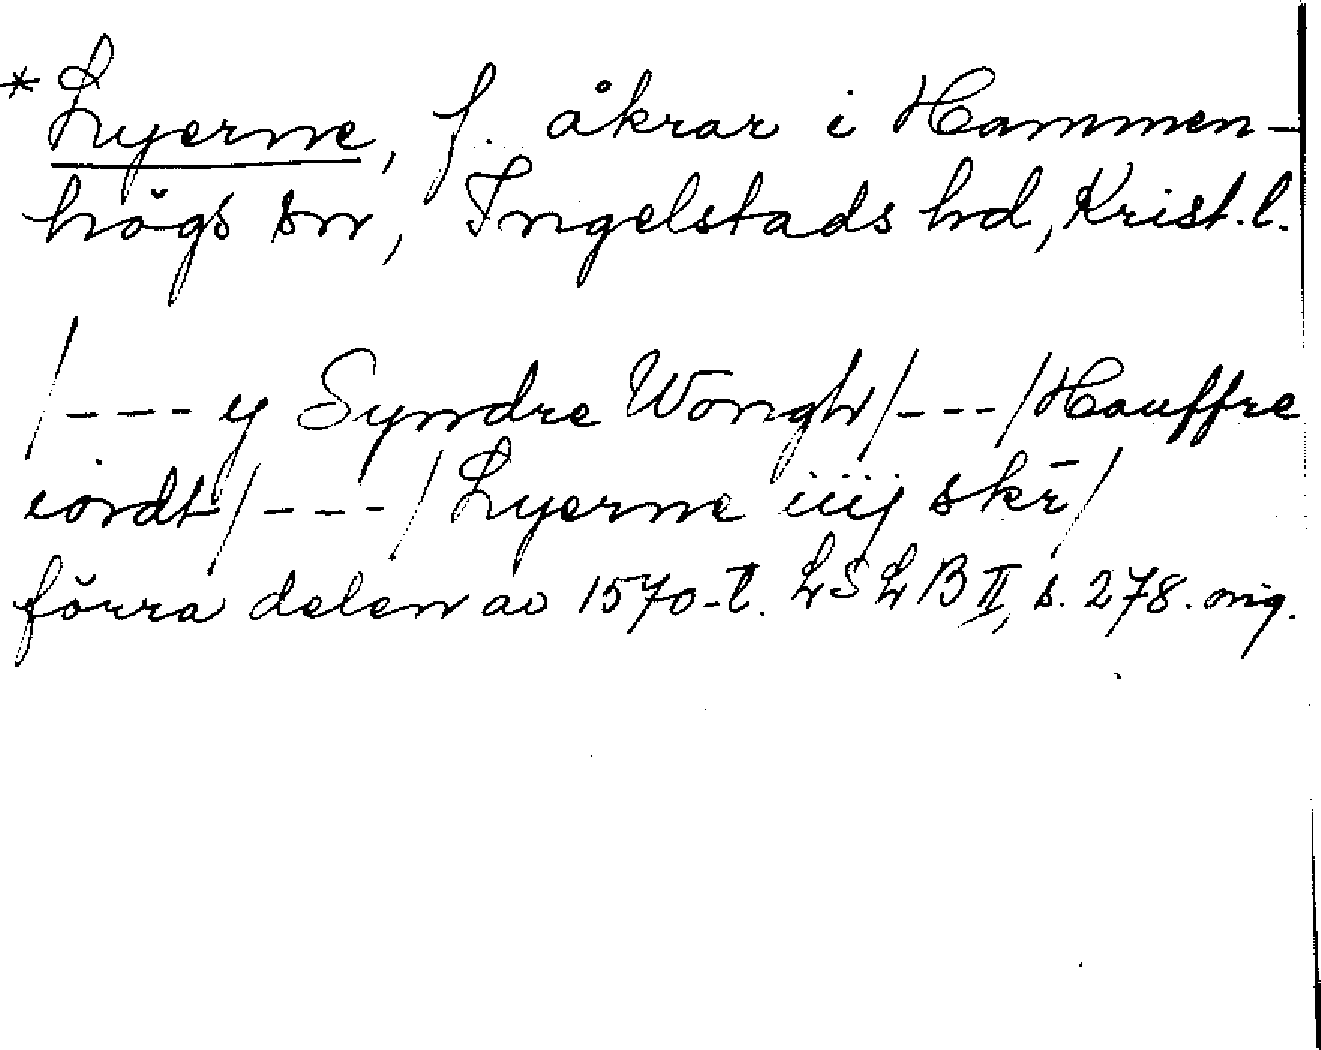 *Lyerne, f. åkrar i Hammen-
högs sn, Ingelstads hd, Krist. l.
/---y Syndre Wongh/---/Hauffre
iordt/---/Lyerne iiij skr̄/
förra delen av 1570-t. LSLB II, s. 278. orig.